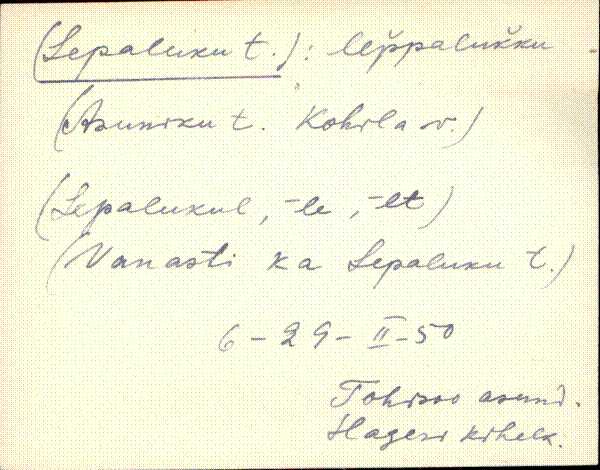 (Lepaluku t.): leppalukku
(Asuniku t. Kohila v.)
(Lepalukul, -le, -lt)
(Vanasti ka Lepaluku t.)
6-29-II-50
Tohisoo asund.
Hageri kihelk.